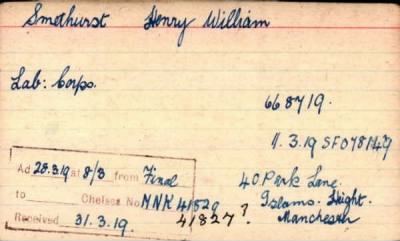 Smethurst Henry William
Lab: Corps.
668719.
11.3.19 SFO78149
Ad 28.3.19 at 8/3 from Final
to Chelsea No NNK 41829
Received 31.3.19. 41827?
40 Park Lane.
Islams. Height.
Manchester